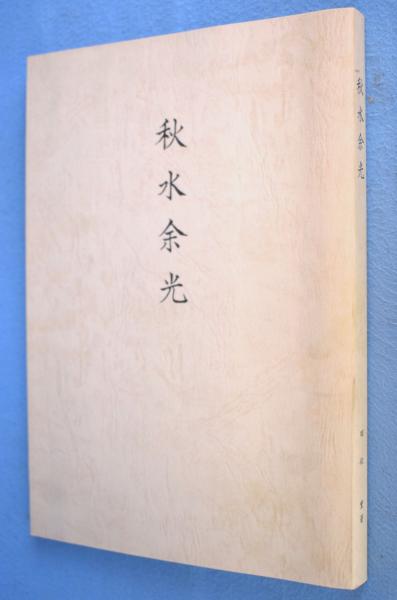 秋水余光
秋水余光